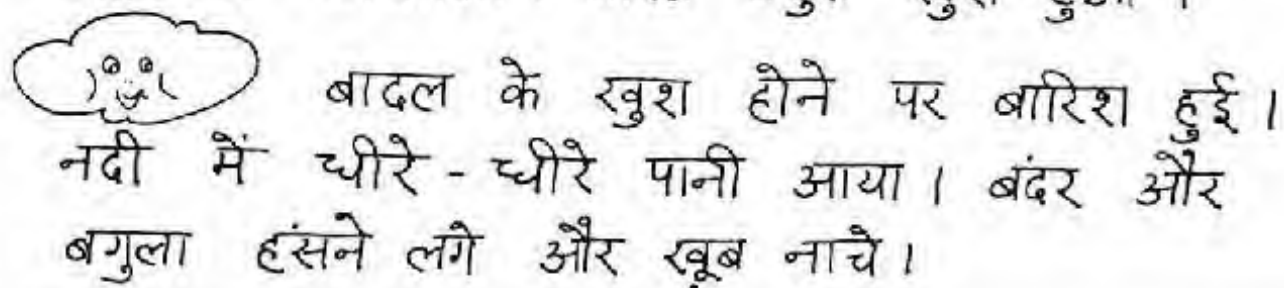 बादल के खुश होने पर बारिश हुई।
नदी में धीरे-धीरे पानी आया। बंदर और
बगुला हंसने लगे और खूब नाचे।